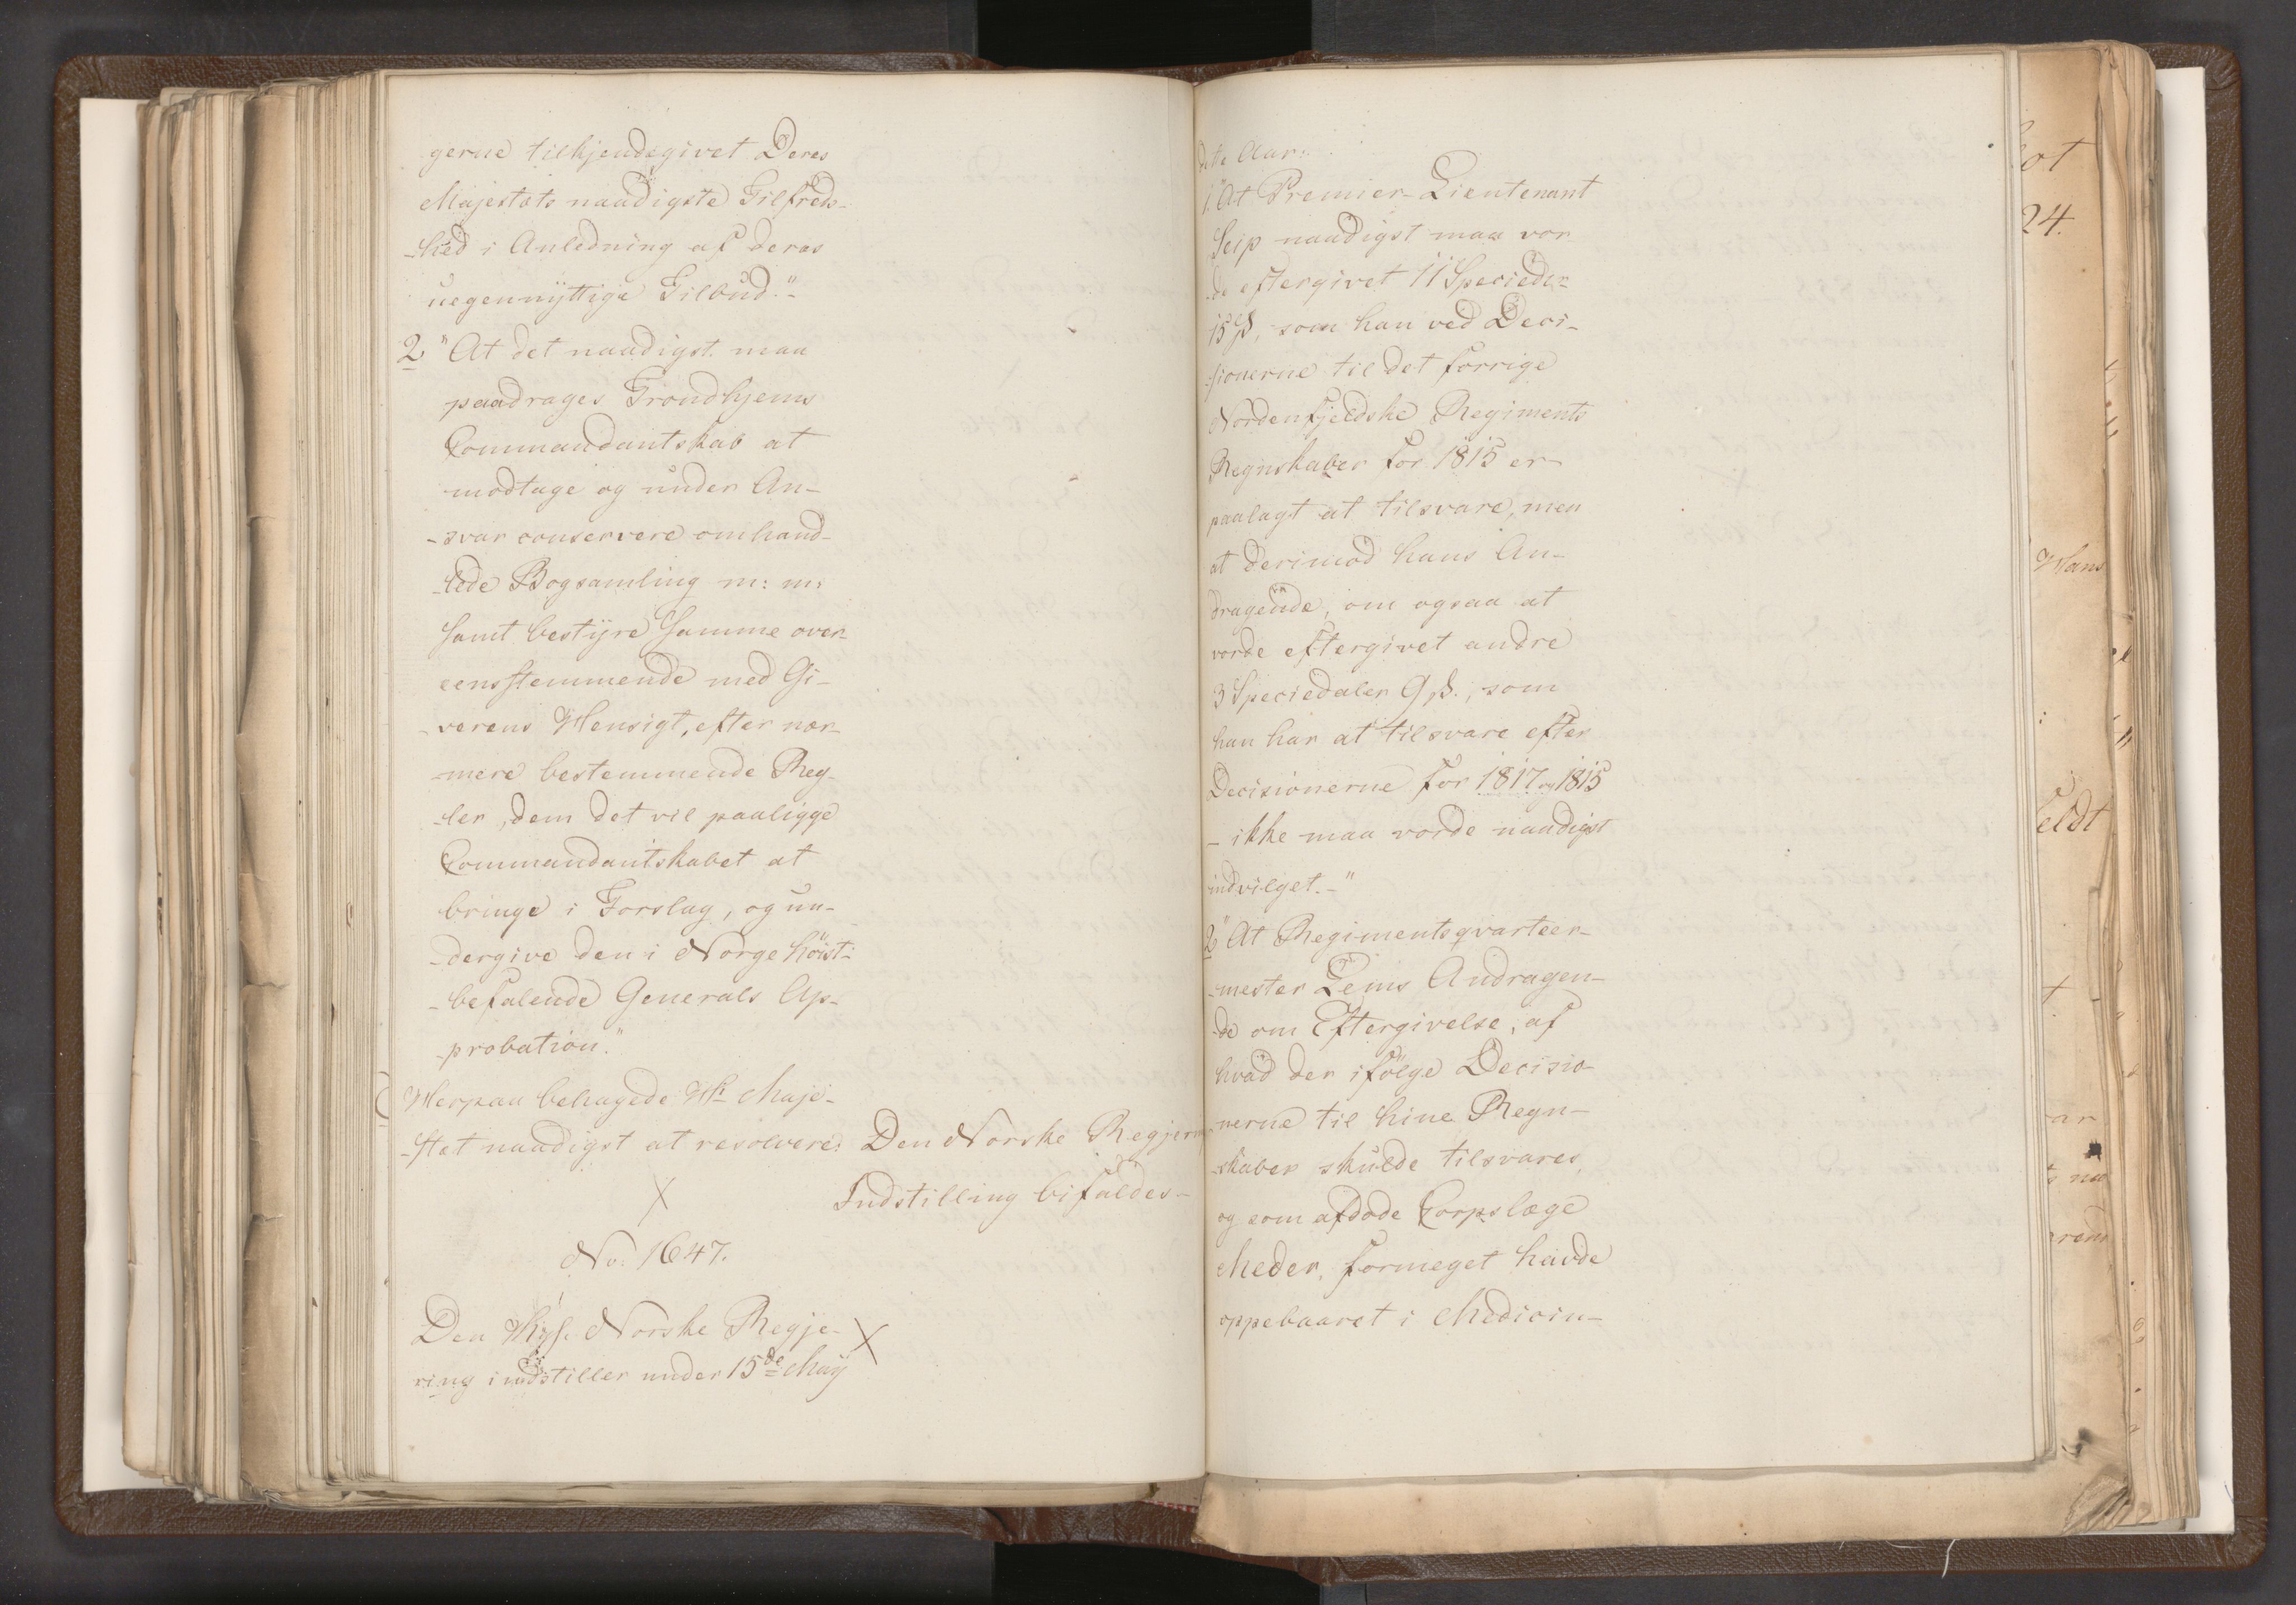 gerne tilkjendegivet Deres
Majestæts naadigste Tilfreds-
-hed i Anledning af deres
uegennÿttige Tilbud."-
2, "At det naadigst maa
paadrages Trondhjems
Commandantskab at
modtage og under An-
-svar conservere omhand-
-lede Bogsamling m: m:
samt bestÿre samme over-
eensstemmende med Gi-
-verens Hensigt, efter nær-
-mere bestemmende Reg-
-ler, dem det vil paaligge
Commandantskabet at
bringe i Forslag, og un-
-dergive den i Norge höist-
-befalende Generals Ap-
-probation."
Herpaa behagede Hs Maje-
-stæt naadigst at resolvere: Den Norske Regjerings
Indstilling bifaldes-
No: 1647.
Den Norske Regje-
ring indstiller under 15de Maÿ
dette Aar:
1, "At Premier-Lieutenant
Seip naadigst maa vor-
-de eftergivet 11 Specieder
15 ß, som han ved Deci-
-sionerne til det forrige
Nordenfjeldske Regiments
Regnskaber for 1815 er
paalagt at tilsvare, men
at derimod hans An-
dragende, om ogsaa at
vorde eftergivet andre
3 Speciedaler 9 ß., som
han har at tilsvare efter
Decisionerne for 1817 og 1815
- ikke maa vorde naadigst
indvilget.-"
2, "At Regimentsqvarteer-
-mester Andragen-
-de om Eftergivelse, af
hvad der ifölge Decisio-
nerne til hine Regn-
-skaber skulde tilsvares,
og som afdøde Corpslæge
Meder, formeget havde
oppebaaret i Medicin-
24.
Hans